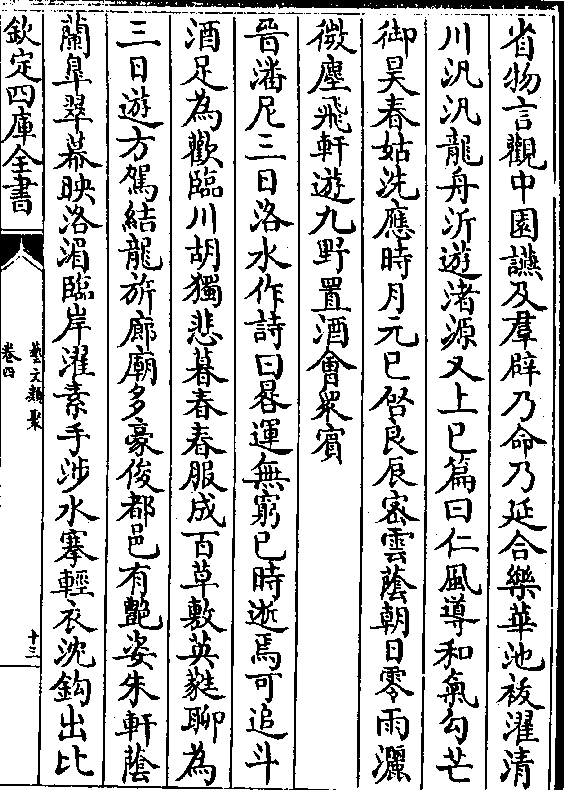 省物言觀中園讌及羣辟乃命乃延合樂華池祓濯清
川汎汎龍舟沂遊渚源又上巳篇曰仁風導和氣勾芒
御昊春姑洗應時月元巳啓良辰密雲蔭朝日零雨灑
微塵飛軒遊九野置酒會衆賓
晉潘尼三日洛水作詩曰晷運無窮巳時逝焉可追斗
酒足為歡臨川胡獨悲暮春春服成百草敷英蕤聊為
三日遊方駕結龍旂廊廟多豪俊都邑有艷姿朱軒蔭
蘭臯翠幕映洛湄臨岸濯素手涉水搴輕衣沈鈎出比
欽定四庫全書
藝文類聚
卷四
十三